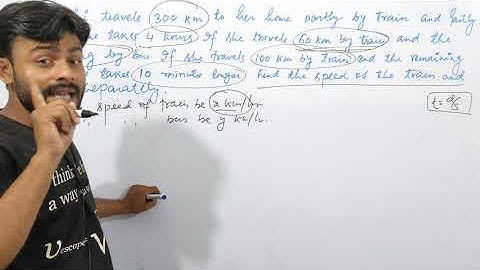 i travels 300 km to her home partly by train and partly
takes 4 hours If she travels 60 km by train and the
by bus If she travels 100 km by train and the remaining
takes 10 minutes longer Find the speed of the train and
separately.
speed of train be x km/hr
" " bus be y km/h.
t = d/s
think
a way